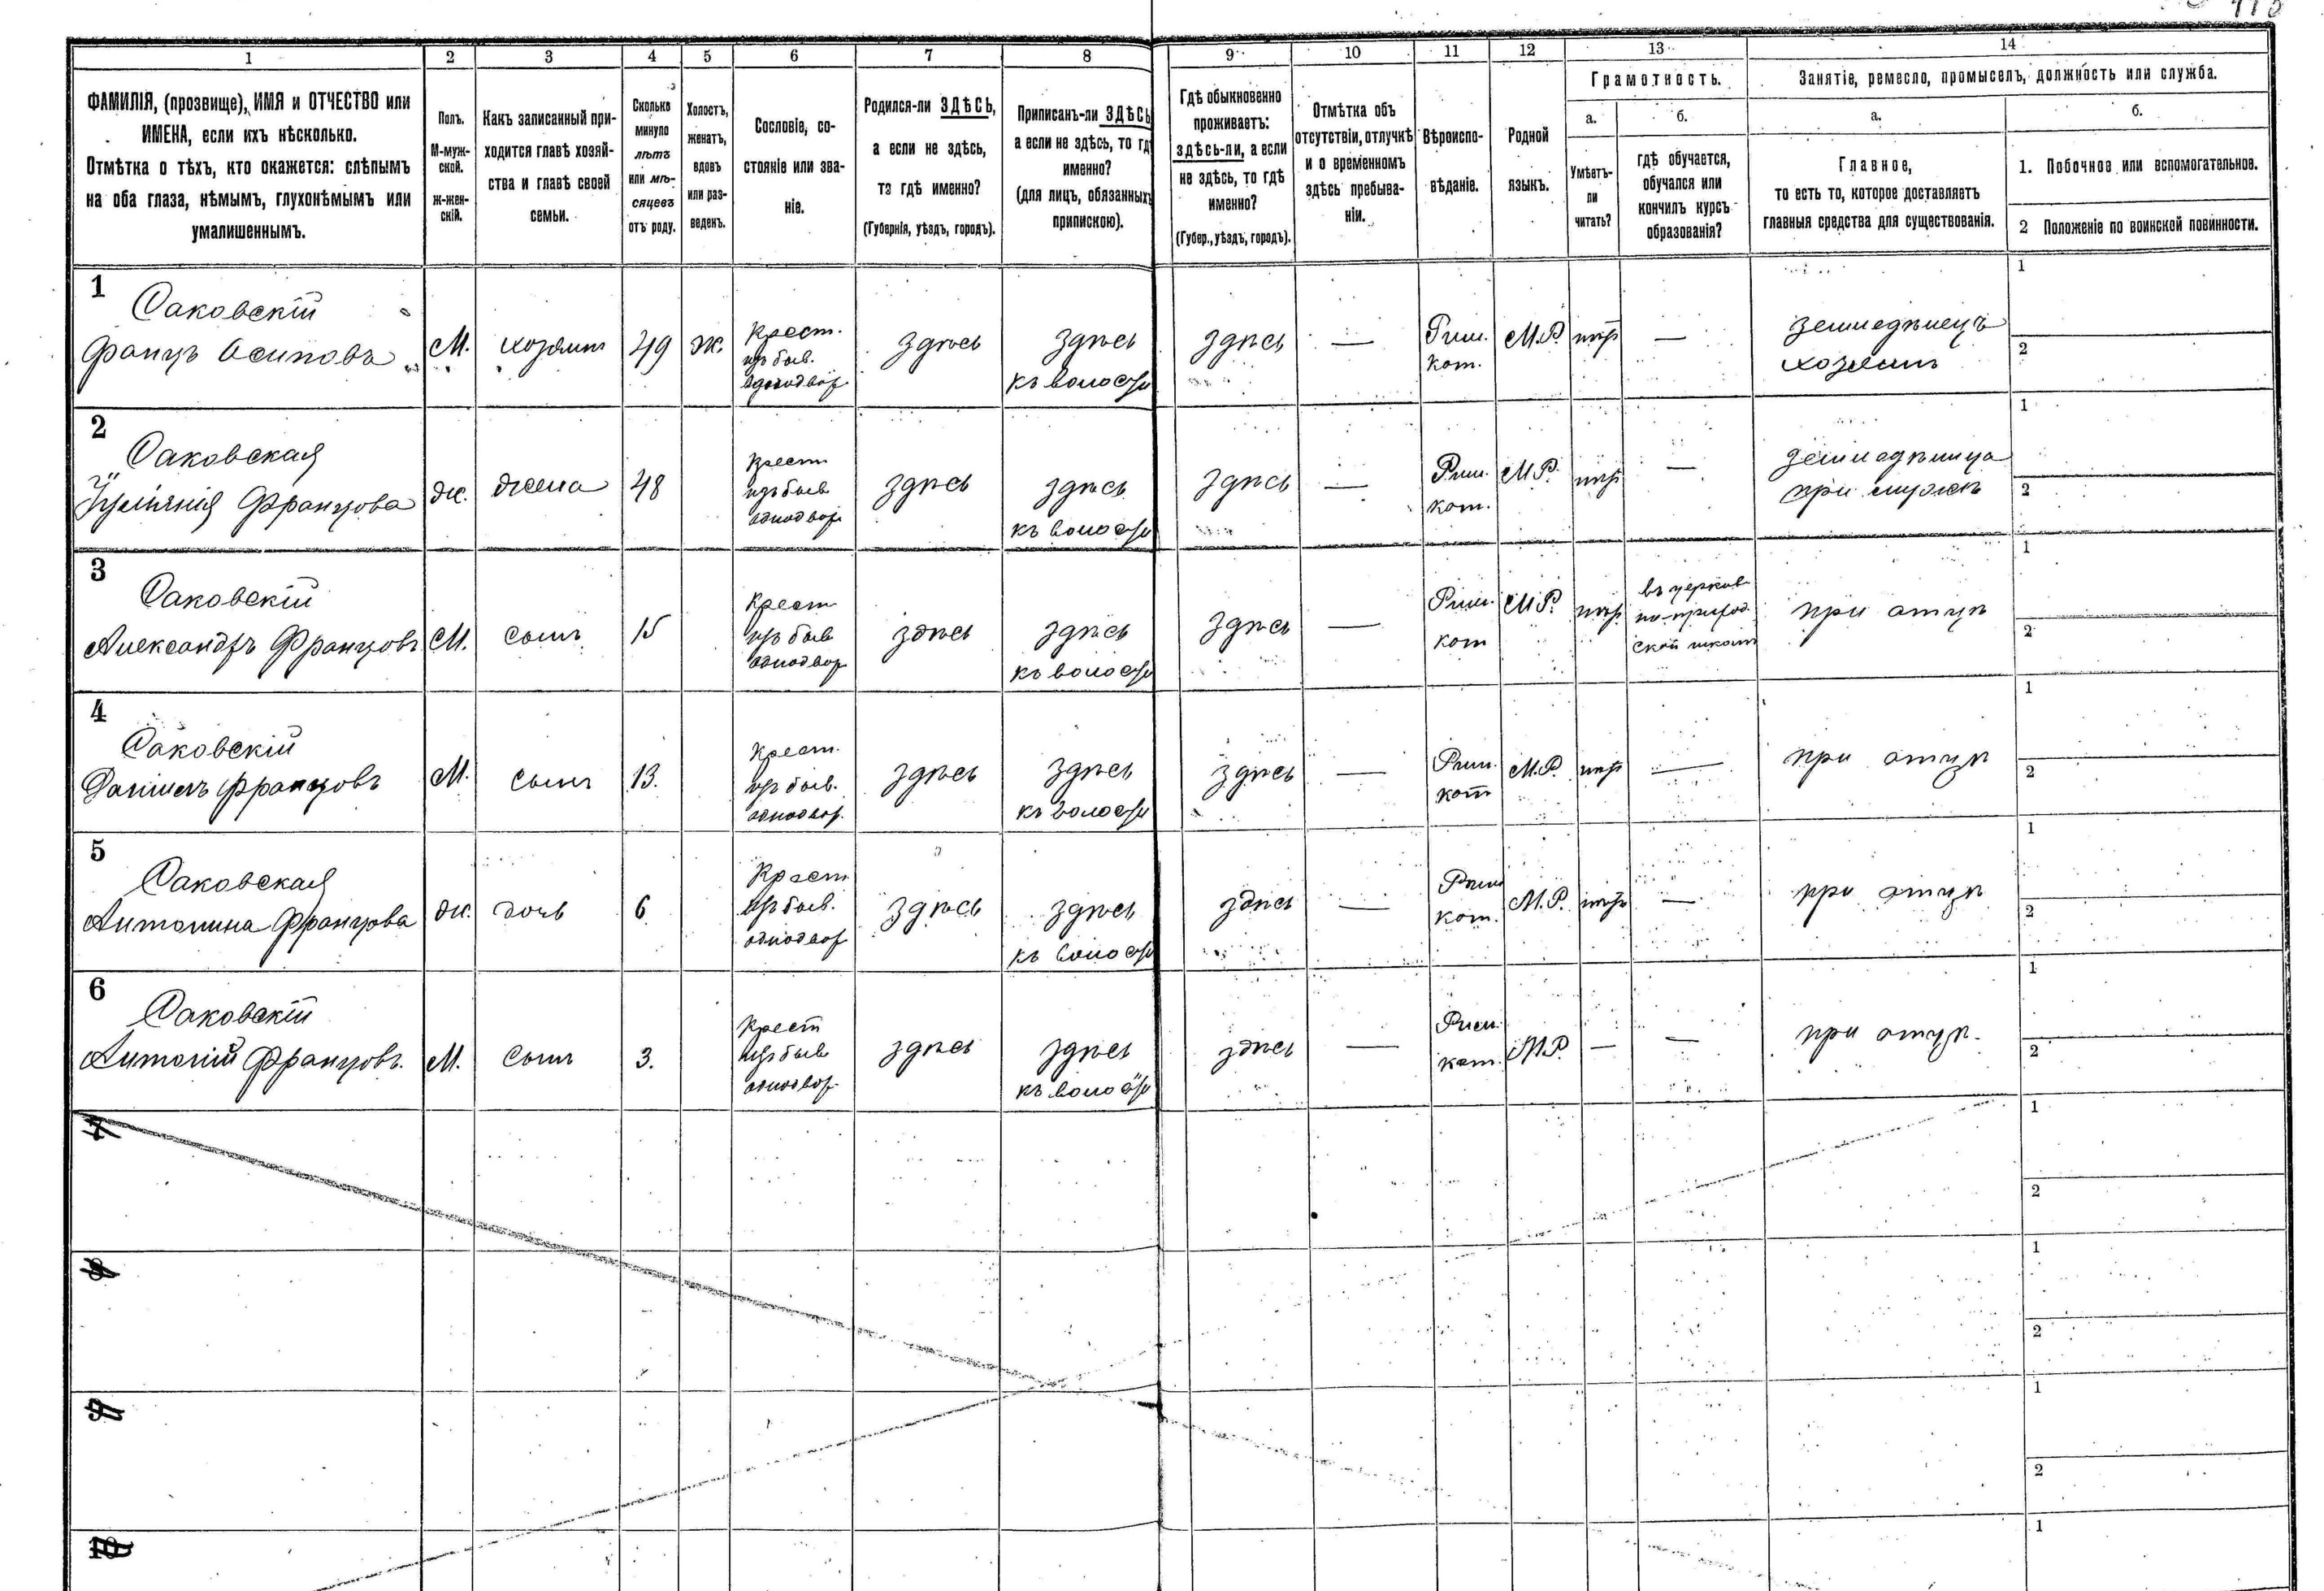 1 2 3 4 5 6 7 8 9 10 11 12 13 14
ФАМИЛІЯ, (прозвище), ИМЯ и ОТЧЕСТВО или
ИМЕНА, если ихъ нѣсколько.
Отмѣтка о тѣхъ, кто окажется: слѣпымъ
на оба глаза, нѣмымъ, глухонѣмымъ или
умалишеннымъ.
Полъ.
М-муж-
ской.
ж-жен-
скій.
Какъ записанный при-
ходится главѣ хозяй-
ства и главѣ своей
семьи.
Сколько
минуло
лѣтъ
или мѣ-
сяцевъ
отъ роду.
Холостъ,
женатъ,
вдовъ
или раз-
веденъ.
Сословіе, со-
стояніе или зва-
ніе.
Родился-ли ЗДѢСЬ,
а если не здѣсь,
то гдѣ именно?
(Губернія, уѣздъ, городъ).
Приписанъ-ли ЗДѢСЬ
а если не здѣсь, то гд
именно?
(для лицъ, обязанныхъ
припискою).
Гдѣ обыкновенно
проживаетъ:
здѣсь-ли, а если
не здѣсь, то гдѣ
именно?
(Губер., уѣздъ, городъ).
Отмѣтка объ
отсутствіи, отлучкѣ
и о временномъ
здѣсь пребыва-
ніи.
Вѣроиспо-
вѣданіе.
Родной
языкъ.
Грамотность.
а.
Умѣетъ-
ли
читать?
б.
гдѣ обучается,
обучался или
кончилъ курсъ
образованія?
Занятіе, ремесло, промыселъ, должность или служба.
а.
Главное,
то есть то, которое доставляетъ
главныя средства для существованія.
б.
1. Побочное или вспомогательное.
2 Положеніе по воинской повинности.
1
Саковскій
Францъ Осиповъ
М. хозяинъ 49 ж.
Крест.
изъ быв.
однодвор.
здѣсь
здѣсь
къ волости
здѣсь —
Рим.
кат.
М.Р. —
земледѣлецъ
хозяинъ
1
2
2
Саковская
Францова
ж. жена 48
Крест
изъ быв
однодвор
здѣсь
здѣсь
къ волости
здѣсь —
Рим.
кат.
М.Р. —
земледѣлица
при мужѣ
1
2
3
Саковскій
Александръ Францовъ
М. сынъ 15
Крест
изъ быв
однодвор
здѣсь
здѣсь
къ волости
здѣсь —
Рим.
кат
М.Р.
въ церков-
но-приход-
ской школѣ
при отцѣ
1
2
4
Саковскій
Даніилъ Францовъ
М. сынъ 13.
Крест.
изъ быв.
однодвор.
здѣсь
здѣсь
къ волости
здѣсь —
Рим.
кат
М.Р. —
при отцѣ
1
2
5
Саковская
Антонина Францова
ж. дочь 6
Крест
изъ быв.
однодвор
здѣсь
здѣсь
къ волости
здѣсь —
Рим
кат.
М.Р. —
при отцѣ
1
2
6
Саковскій
Антоній Францовъ.
М. сынъ 3.
Крест
изъ быв
однодвор.
здѣсь
здѣсь
къ волости
здѣсь —
Рим.
кат.
М.Р. — —
при отцѣ.
1
2
7
1
2
8
1
2
9
1
2
10
1